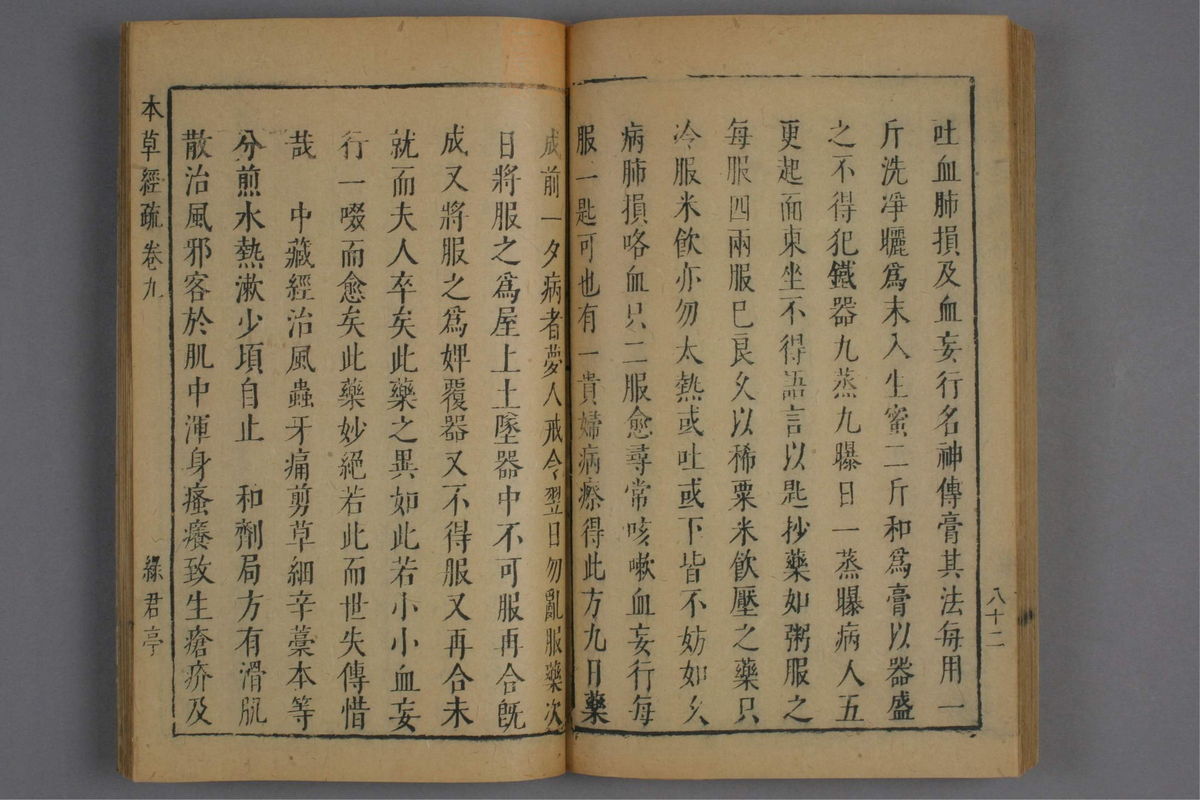 八十二
吐血肺損及血妄行名神傳膏其法每用一
斤洗凈曬爲末入生蜜二斤和爲膏以器盛
之不得犯鐵器九蒸九曝日一蒸曝病人五
更起面東坐不得語言以匙抄藥如粥服之
每服四兩服巳良久以稀粟米飲壓之藥只
冷服米飲亦勿太熱或吐或下皆不妨如久
病肺損咯血只二服愈尋常咳嗽血妄行每
服一匙可也有一貴婦病瘵得此方九日藥
成前一夕病者夢人戒令翌日勿亂服藥次
日將服之爲屋上土墜器中不可服再合旣
成又將服之爲婢覆器又不得服又再合未
就而夫人卒矣此藥之異如此若小小血妄
行一啜而愈矣此藥妙絕若此而世失傳惜
哉　中藏經治風蟲牙痛剪草細辛藁本等
分煎水熱漱少頃自止　和劑局方有滑肌
散治風邪客於肌中渾身瘙癢致生瘡疥及
本草經疏 卷九
綠君亭